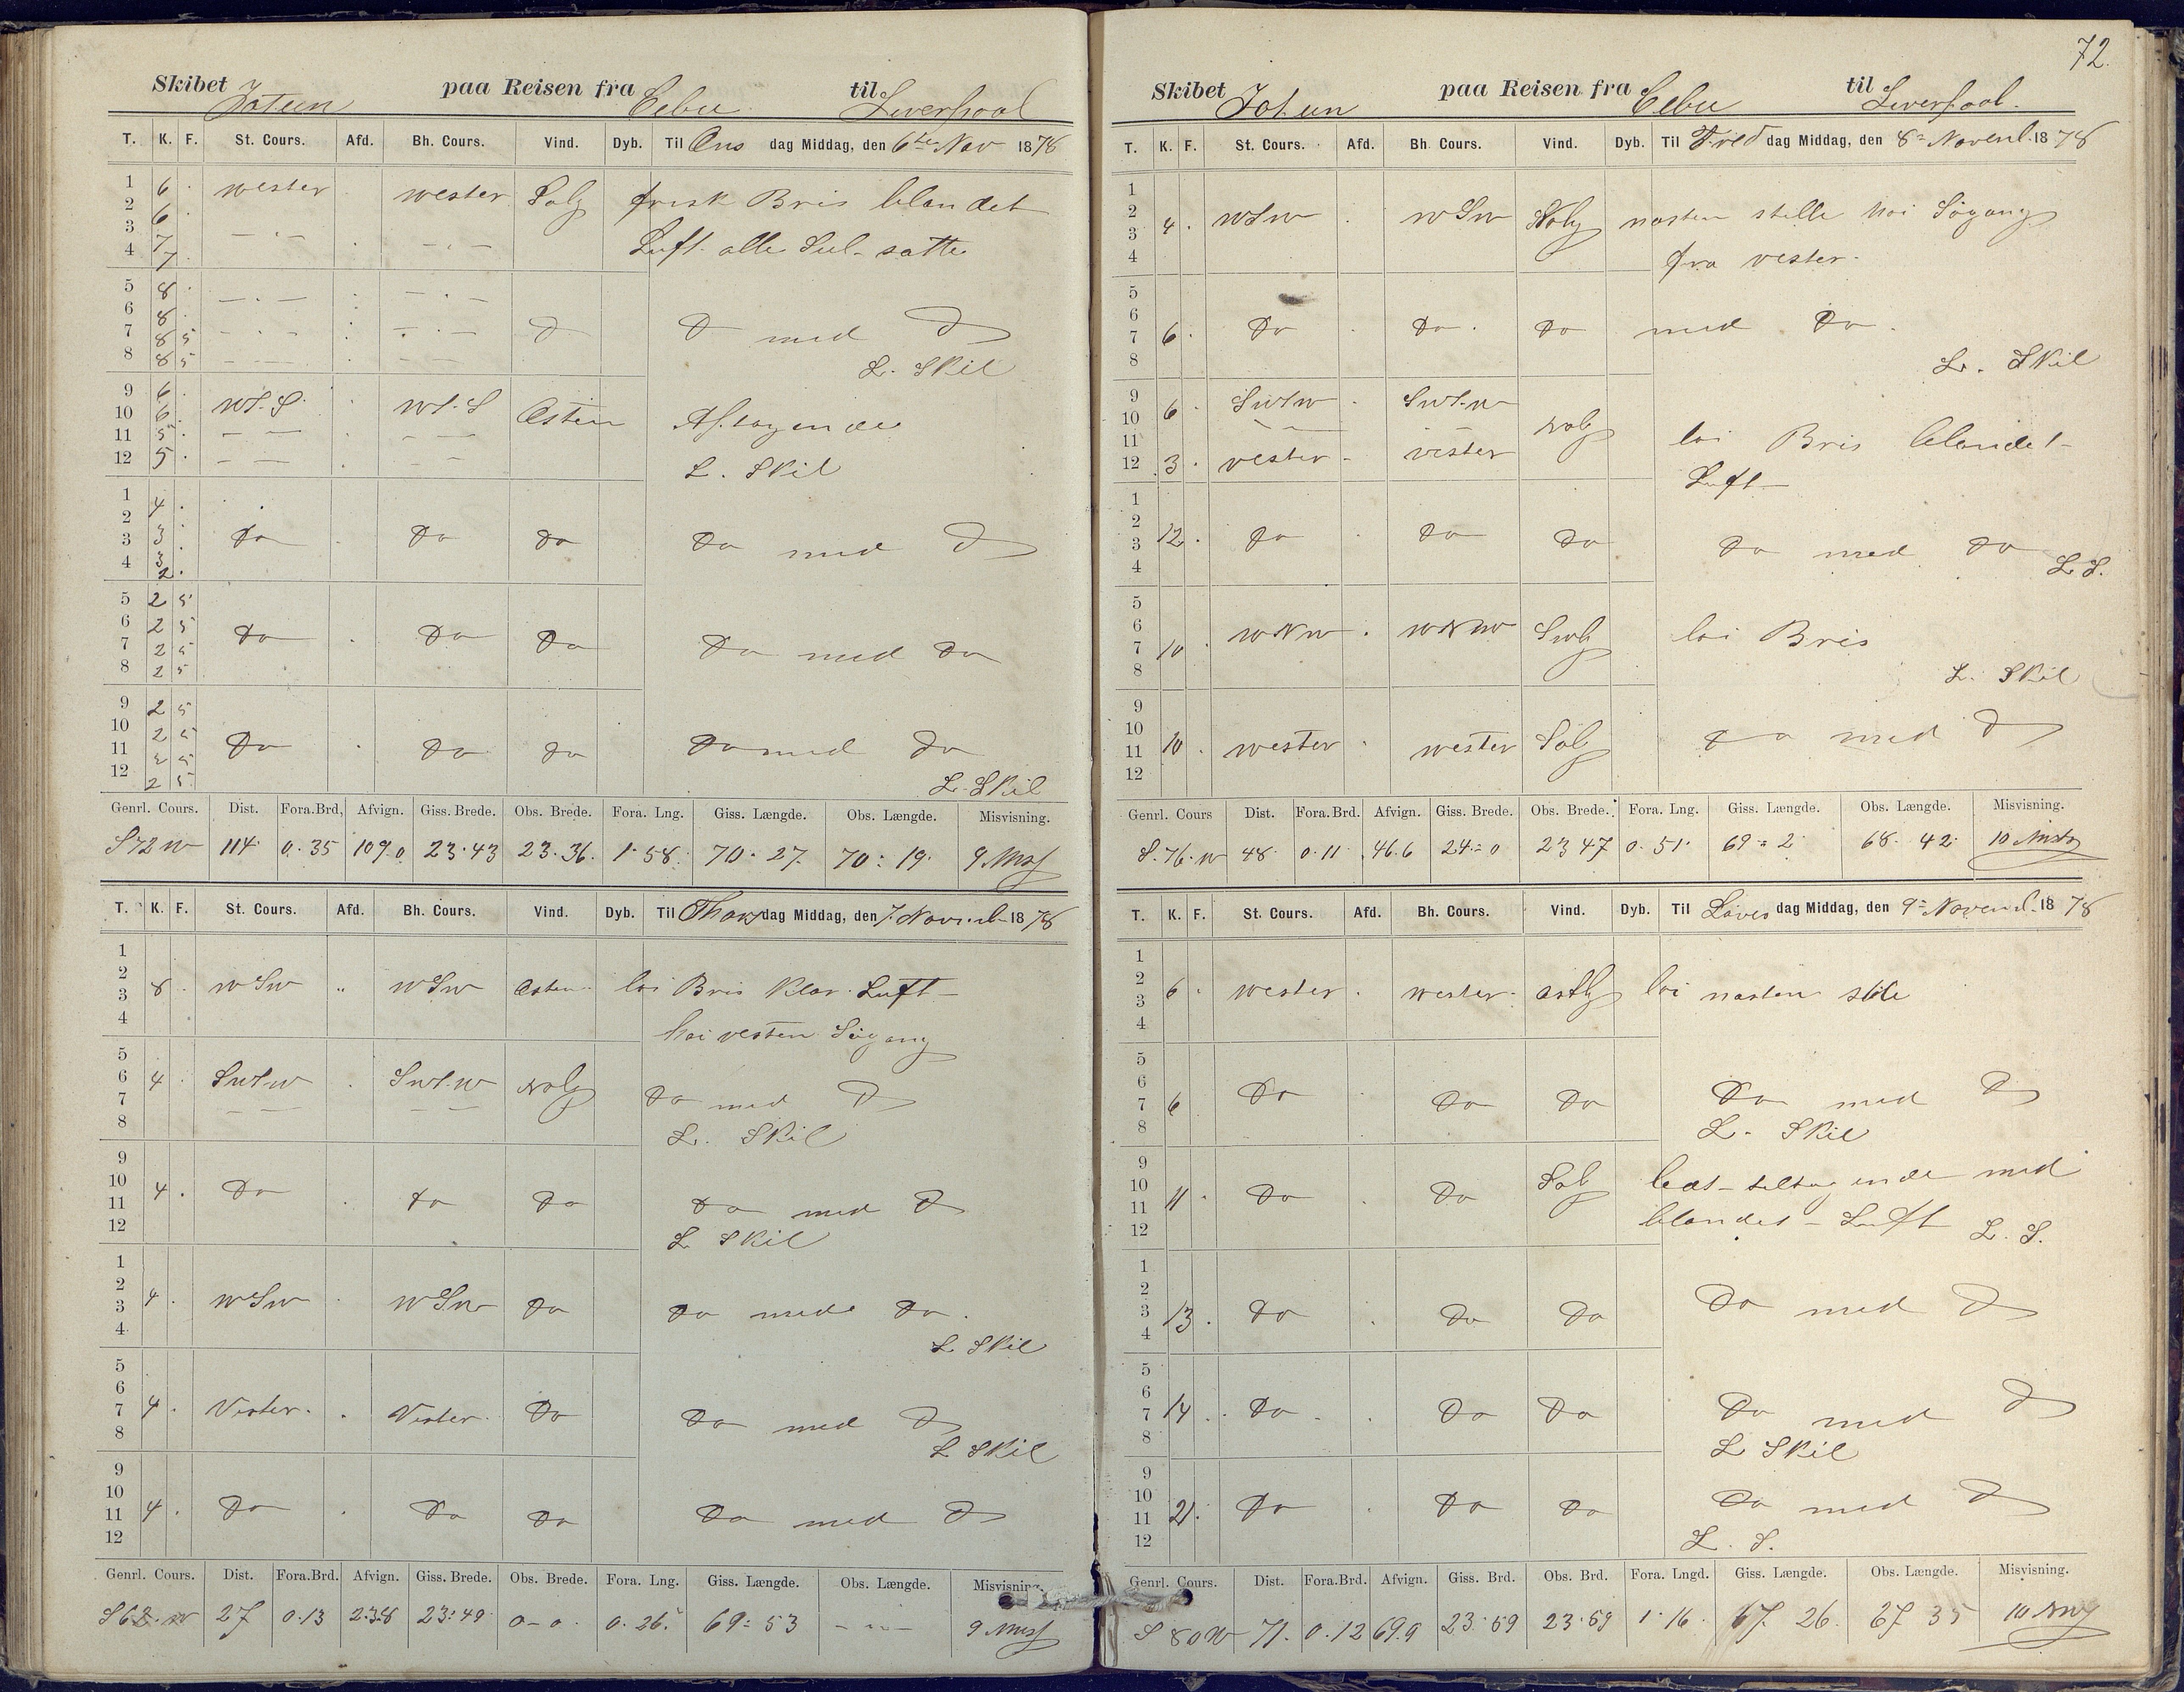 Skibet Jotun paa Reisen fra Cebu til Liverpool
T. K. F. St. Cours. Afd. Bh. Cours. Vind. Dyb. Til Ons dag Middag, den 6te Nov 1878
1 6 . wester . wester Solg frisk Bris blandet
2 6 .
3 7 — . — . — . — Luft alle Seil satte
4 7 .
5 8 . — . — : — . —
6 8 .
7 8 5 — . — : — . — D D med D
8 8 5 — — — . — — L. Skil
9 6 . WS.S. . WS.S Osten Aftagende
10 6 .
11 5 . — — . — —
12 5 . — — . — — L. Skil
1 4 .
2 3 . Do . Do Do Do med D
3 3 .
4 2 .
5 2 5
6 2 5 Do . Do Do Do med Do
7 2 5
8 2 5
9 2 5
10 2 5 Do . Do Do Do med Do
11 2 5
12 2 5 L. Skil
Genrl. Cours. Dist. Fora.Brd. Afvign. Giss. Brede. Obs. Brede. Fora. Lng. Giss. Længde. Obs. Længde. Misvisning.
S 72 W 114. 0.35 109.0 23.43 23.36. 1.58. 70.27. 70:19. 9 Misf
T. K. F. St. Cours. Afd. Bh. Cours. Vind. Dyb. Til Thors dag Middag, den 7. Novemb. 1878
1
2 8 . WSW „ WSW Osten loi Bris Klar Luft
3
4 hoi vesten Sögang
5
6 4 . SWS.W . SWS.W NOlg Do med D
7 — — — —
8 L. Skil
9
10 4 . Do . Do Do Do med D
11
12 L Skil
1
2 4 . WSW . WSW Do Do med Do.
3
4 L Skil
5
6 4 . Vester. . Vester. Do Do med D
7
8 L Skil
9
10 4 . Do . Do Do Do med D
11
12
Genrl. Cours. Dist. Fora.Brd. Afvign. Giss. Brede. Obs. Brede. Fora. Lng. Giss. Længde. Obs. Længde. Misvisning.
S 62. W 27 0.13 23.8 23:49 0-0. 0.26. 69:53 - „ - 9 Misf
72.
Skibet Jotun paa Reisen fra Cebu til Liverpool.
T. K. F. St. Cours. Afd. Bh. Cours. Vind. Dyb. Til Fred dag Middag, den 8= Novemb. 1878
1
2 4 . WSW . WSW NOlg nasten stille hoi Sögang
3
4 fra vester.
5
6 6 . Do . Do . Do med Do.
7
8 L. Skil
9 SWSW . SWS.W
10 6 . — —
11 NOlg loi Bris blandet
12 3 . vester . vester Luft
1
2 12 . Do . Do Do Do med Do
3
4 L.S.
5
6 10 . WNW . WNW SWlg loi Bris
7
8 L. Skil
9
10 10 . wester . wester Solg Do med D
11
12
Genrl. Cours Dist. Fora.Brd. Afvign. Giss. Brede. Obs. Brede. Fora. Lng. Giss. Længde. Obs. Længde. Misvisning.
S.76.W 48. 0.11. 46.6 24=0 23 47 0.51. 69=2. 68.42. 10
T. K. F. St. Cours. Afd. Bh. Cours. Vind. Dyb. Til Löver dag Middag, den 9= Novemb. 1878
1
2 6 . wester . wester . ostlg loi nasten stille
3
4
5
6 6 Do . Do Do Do med D
7
8 L. Skil
9
10 11 . Do . Do Solg ledt tiltagende med
11 blandet Luft L. S.
12
1
2 13 . Do . Do Do Do med D
3
4
5
6 14 . Do . . Do Do Do med D
7
8 L Skil
9
10 21 . Do . Do Do Do med D
11
12 L. S.
Genrl. Cours. Dist. Fora.Brd. Afvign. Giss. Brd. Obs. Brd. Fora. Lngd. Giss. Længde. Obs. Længde. Misvisning.
S 80 W 71. 0.12 69.9 23.59 23.59 1.16. 67.26. 67 35 10